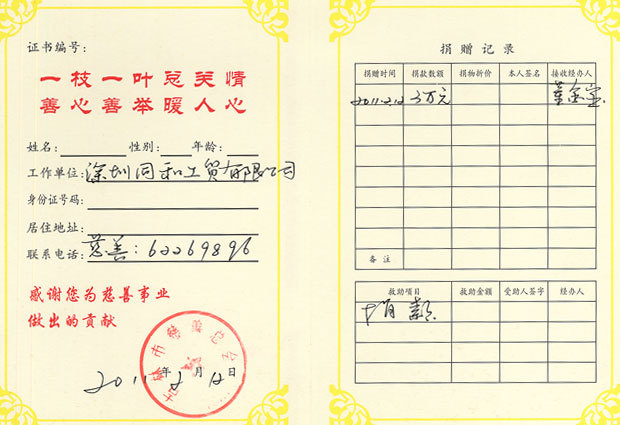 证书编号：
一枝一叶总关情
善心善举暖人心
姓名： 性别： 年龄：
工作单位：深圳同和工贸有限公司
身份证号码：
居住地址：
联系电话：慈善：62269896
感谢您为慈善事业
做出的贡献
市慈善总会
2011年2月12日
捐赠记录
捐赠时间 捐款数额 捐物折价 本人签名 接收经办人
2011.2.12 3万元
备注
救助项目 救助金额 受助人签字 经办人